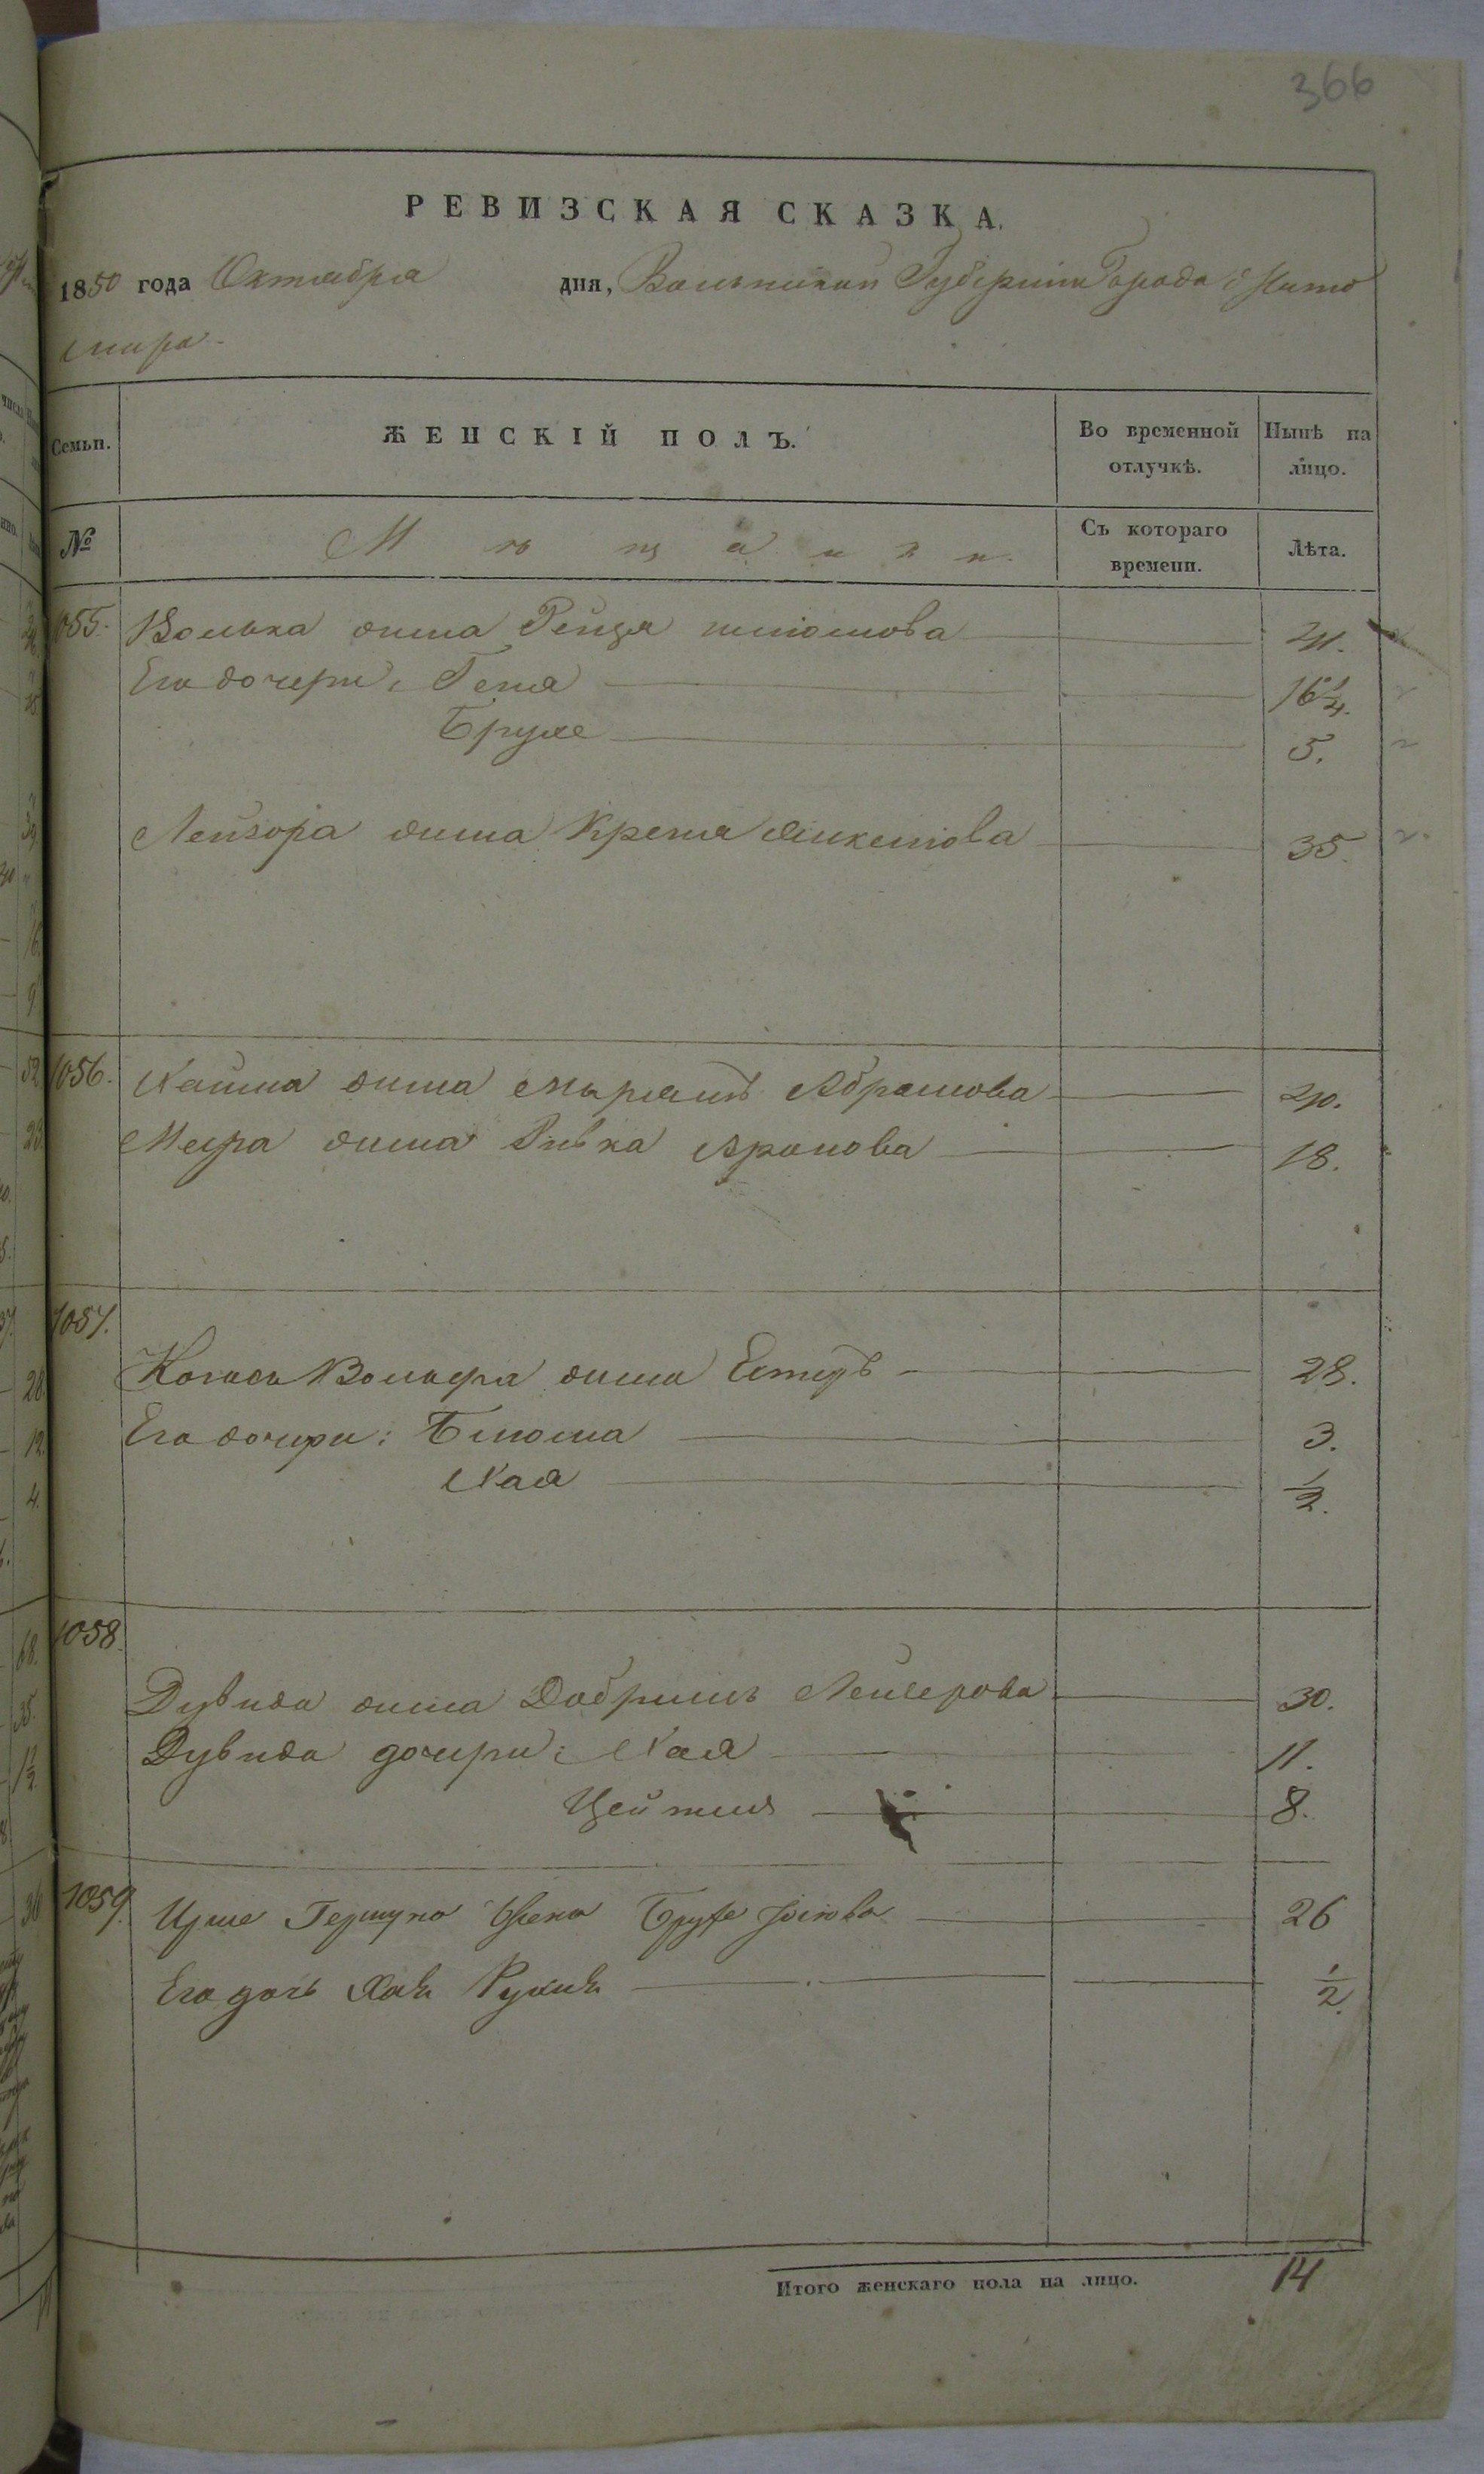 366
РЕВИЗСКАЯ СКАЗКА.
1850 года Октября дня, Волынской Губернии Города Жито
мира
Семьи. ЖЕНСКІЙ ПОЛЪ. Во временной отлучкѣ. Нынѣ на лицо.
№ Мѣщанки. Съ котораго времени. Лѣта.
1055. Волька жена Рейзя 41.
Его дочери: Геня 16 1/4.
Брухе 5.
Лейзора жена Крейня 35.
1056. Хаима жена Марьямъ Абрамова 20.
Меера жена Ривка Аронова 18.
1057.
Вольфа жена Естеръ 28.
Его дочери: 3.
Хая 1/2.
1058.
Дувида жена Добришъ Лейзерова 30.
Дувида дочери: Хая 11.
Цейтля 8.
1059. Гершуна жена Брухе 26
Его дочь Хая Рухля 1/2.
Итого женскаго пола на лицо. 14